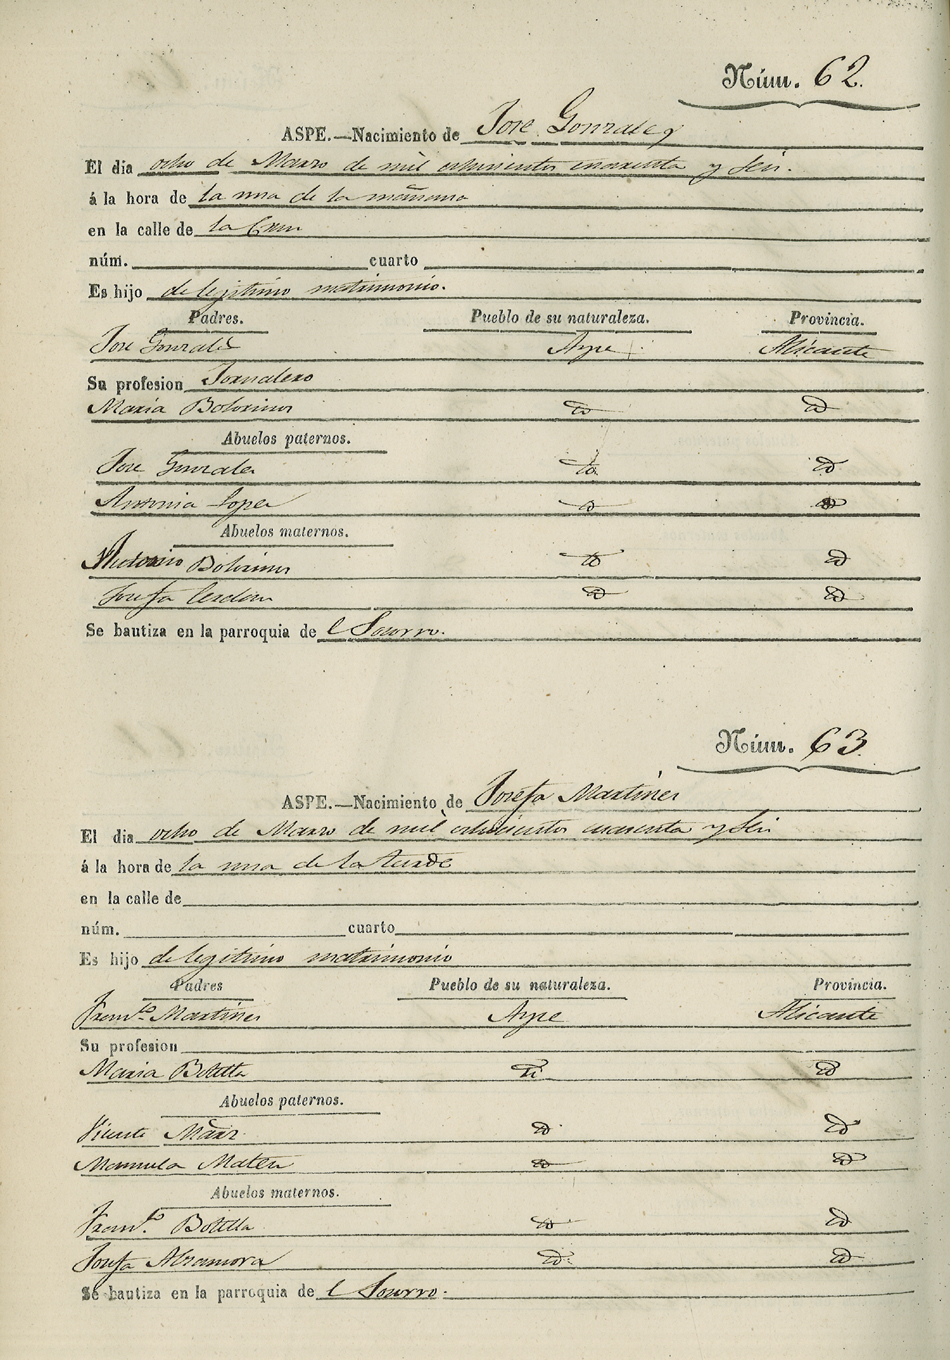 Núm. 62.
ASPE.—Nacimiento de Jose Gonzalez
El dia ocho de Marzo de mil ochocientos cuarenta y seis.
á la hora de la una de la mañana
en la calle de la Cruz
núm. cuarto
Es hijo de legitimo matrimonio.
Padres. Pueblo de su naturaleza. Provincia.
Jose Gonzalez Aspe Alicante
Su profesion Jornalero
Maria Botorinos id id
Abuelos paternos.
Jose Gonzalez id id
Antonia Lopez id id
Abuelos maternos.
Antonio Botorinos id id
Josefa Cerdan id id
Se bautiza en la parroquia de l Socorro.
Núm. 63.
ASPE.—Nacimiento de Josefa Martines
El dia ocho de Marzo de mil ochocientos cuarenta y seis
á la hora de la una de la tarde
en la calle de
núm. cuarto
Es hijo de legitimo matrimonio
Padres Pueblo de su naturaleza. Provincia.
Franco. Martines Aspe Alicante
Su profesion
Maria Botella id id
Abuelos paternos.
Vicente Marz id id
Manuela Mateu id id
Abuelos maternos.
Franco. Botella id id
Josefa Alzamora id id
Se bautiza en la parroquia de l Socorro.